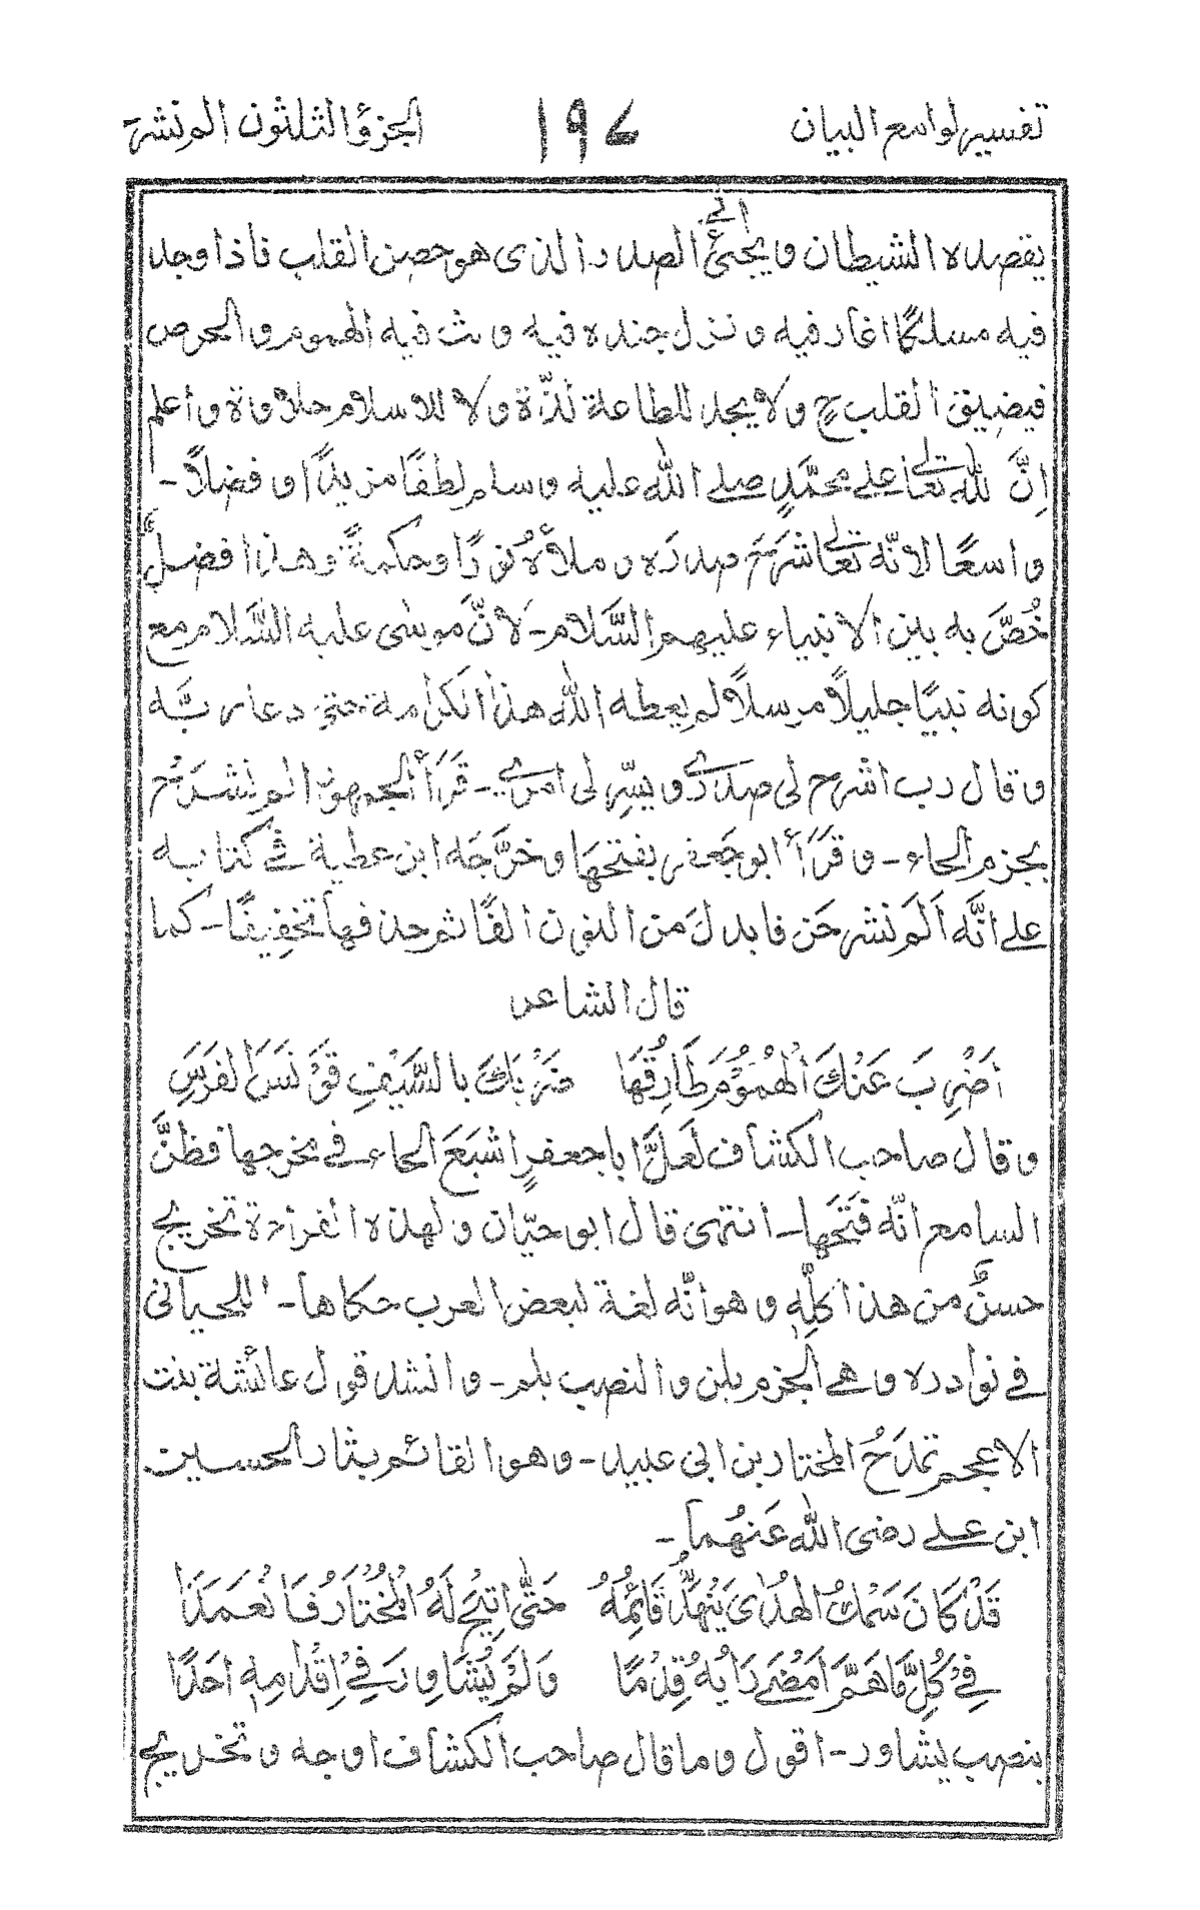 تفسير لوامع البيان ١٩٧ الجزؤ الثلثون الم نشرح
يقصده الشيطان ويجئ الى الصدر الذى هو حصن القلب فاذا وجد
فيه مسلكًا اغار فيه ونزل جنده فيه وبث فيه الهموم والحرص
فيضيق القلب ح ولا يجد للطاعة لذّة ولا للاسلام حلاوة واعلم
اِنَّ لله تعالى على محمّدٍ صلى الله عليه وسلم لطفًا مزيدًا وفضلاً-
واسعًا لانّه تعالى شَرَحَ صدرَه وملأهُ نورًا وحكمةً وهذا فضلٌ
خُصَّ به بين الانبياء عليهم السَّلام- لانّ موسٰى عليه السَّلام مع
كونه نبيًا جليلاً مرسلاً لم يعطه الله هذا الكرامة حتى دعا ربَّه
وقال رب اشرح لى صدرى ويسِّر لى امرى- قَرَأَ الجمهورُ الم نشرَحْ
بجزم الحاء- وقَرَأَ ابو جَعفر بفتحهَا وخرَّجَه ابن عطية فى كتابه
على انَّه اَلَم نشرحَن فابدلَ من النون الفًا ثم حذفها تخفِيفًا- كما
قال الشاعر
اَضْرِبَ عَنْكَ الْهُمُوْمَ طَارِقُهَا ضَرْبَكَ بالسَّيْفِ قَوْنَسَ الفَرَسِ
وقال صاحب الكشاف لَعلَّ اباجعفرٍ اشبَعَ الحاء فى مخرجها فظنَّ
السامع انّه فَتَحَها- انتهى قال ابو حيّان ولهذه القراءة تخريج
حسنٌ من هذا كلِّهٖ وهو انّه لغة لبعض العرب حكاها- اللحيانى
فى نوادره وهى الجزم بلن والنصب بلم- وانشد قول عائشة بنت
الاعجم تمدَحُ المختار بن ابى عبيد- وهو القائم بثار الحسين
ابن على رضى الله عَنهُما-
قَدْ كَانَ سَمْكُ الهُدٰى يَنْهَدُّ قَائِمُهُ حَتّٰى اتِيْحَ لَهُ الْمُخْتَارُ فَانْعَمَدَا
فِىْ كُلِّ مَا هَمَّ اَمْضٰى رَايُهُ قِدْمًا وَلَمْ يُشَاوِرَ فِىْ اِقْدَامِهٖ اَحَدًا
بنصب يشاور- اقول وما قال صاحب الكشاف اوجه وتخريج